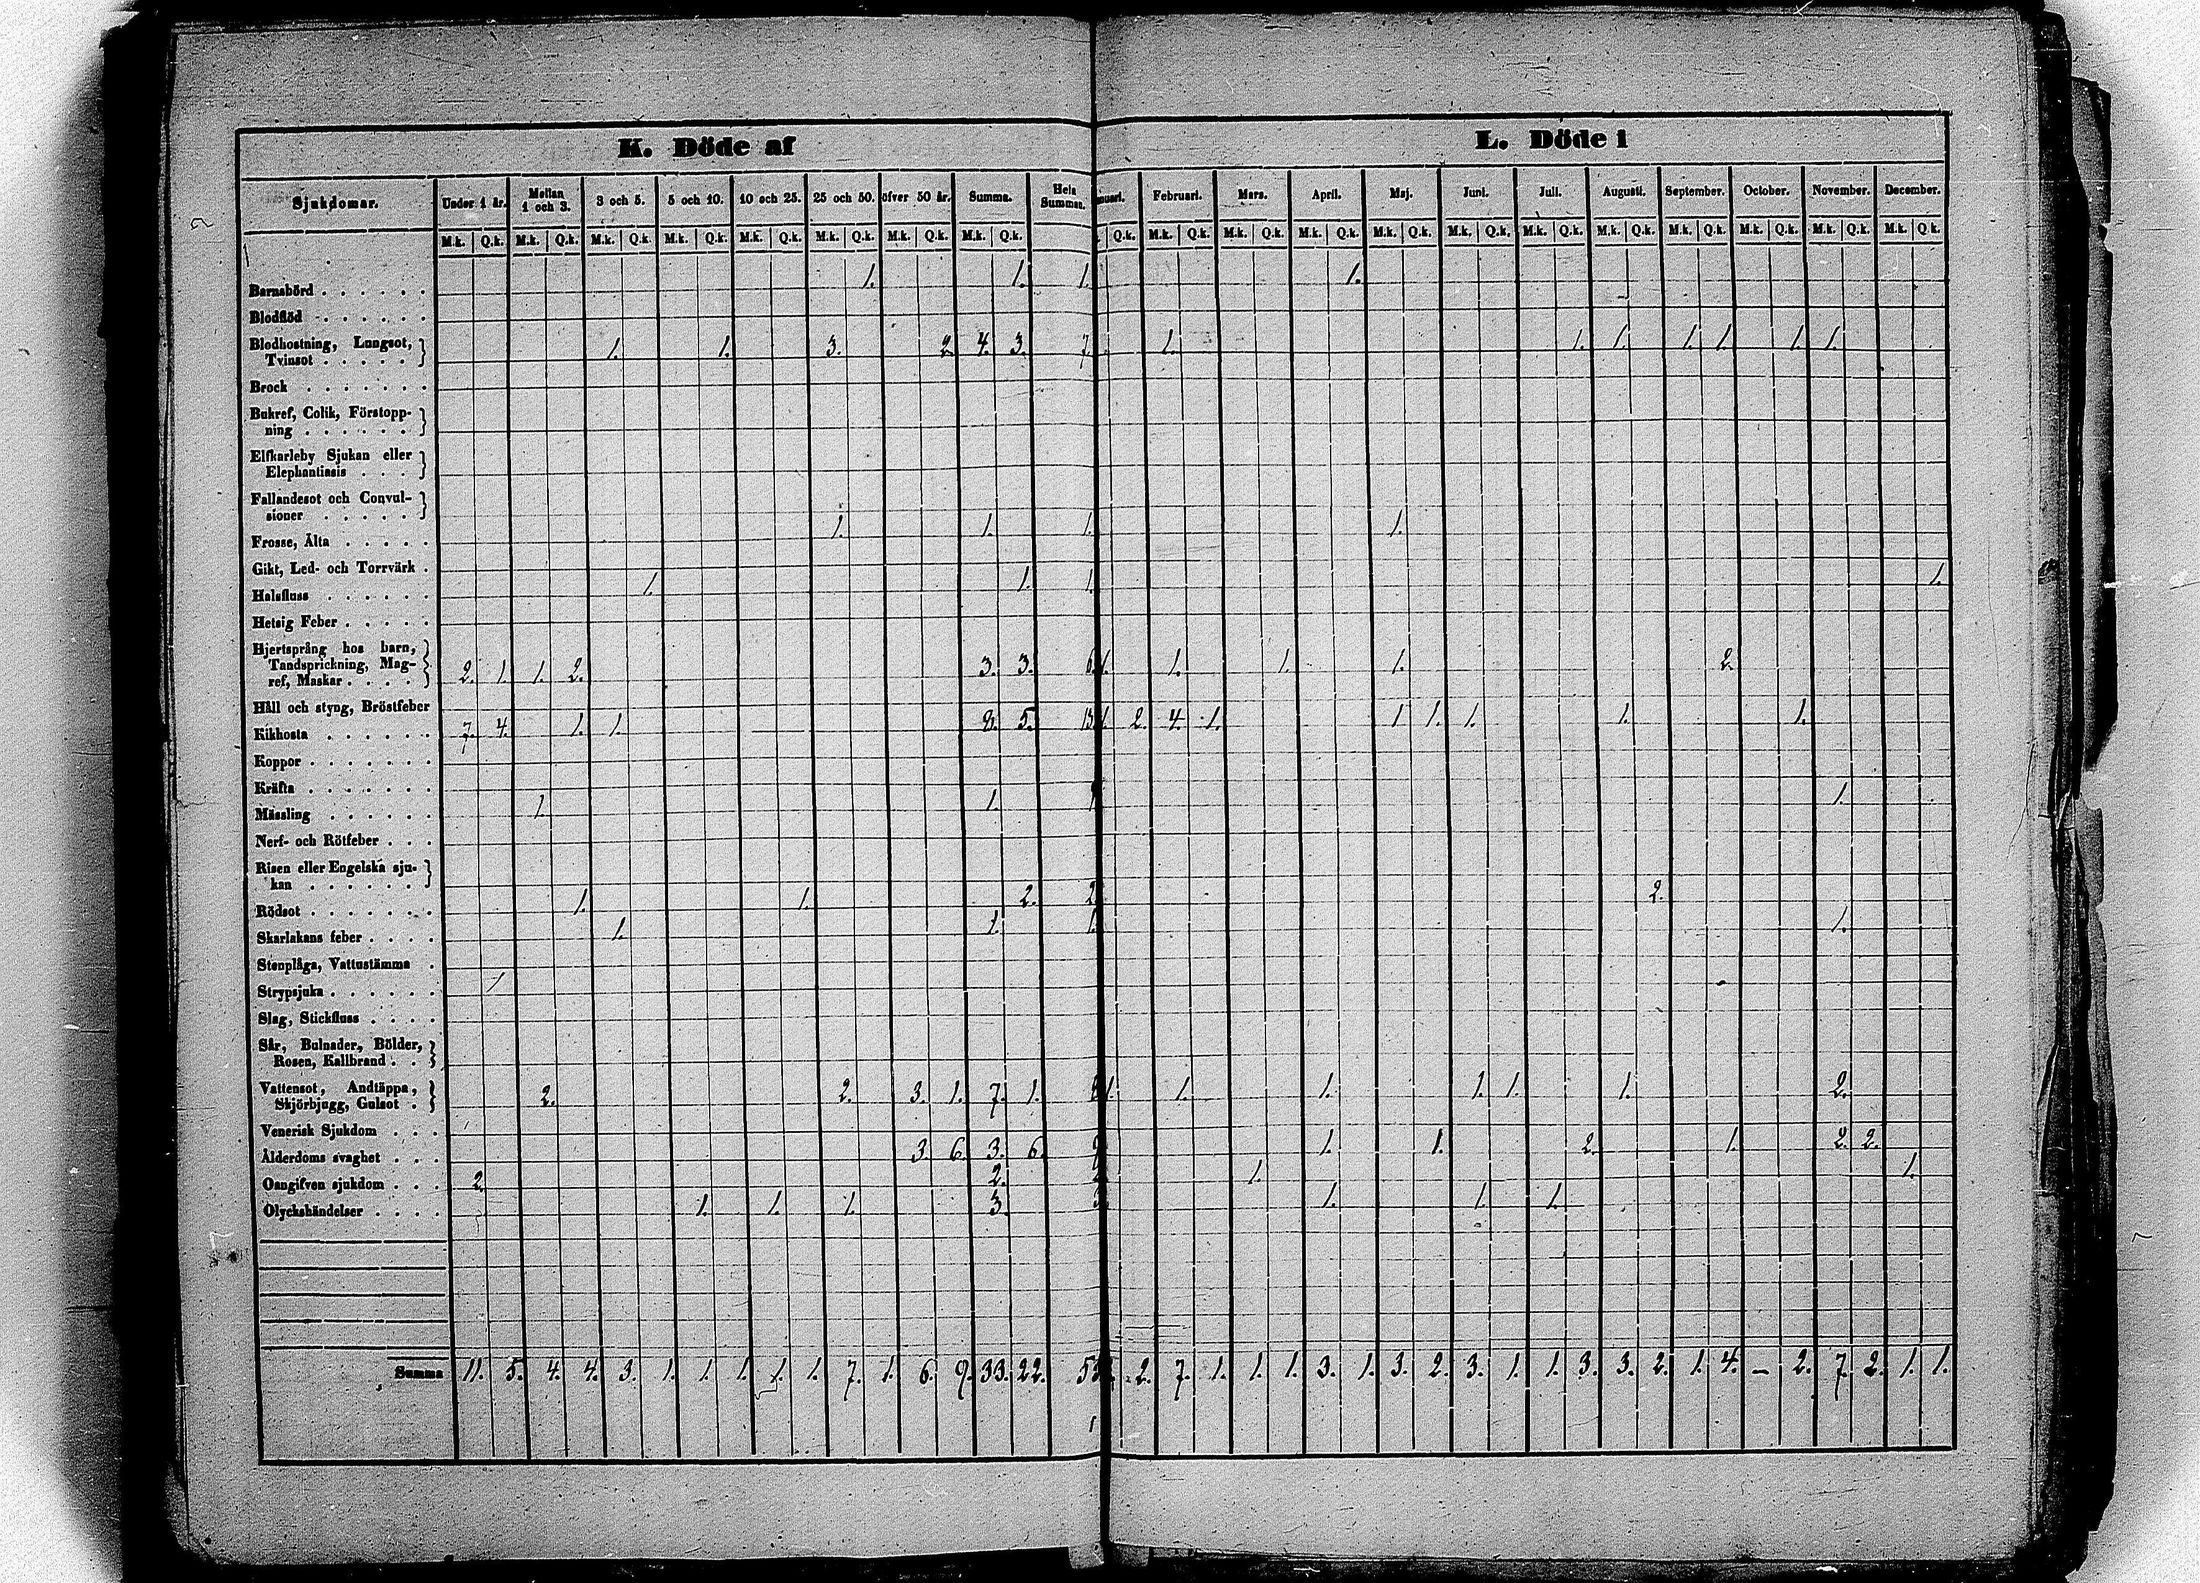 K. Döde af
L. Döde i
Sjukdomar. Under 1 år. Mellan 1 och 3. 3 och 5. 5 och 10. 10 och 25. 25 och 50. öfver 50 år. Summa. Hela Summan. Februari. Mars. April. Maj. Juni. Juli. Augusti. September. October. November. December.
M.k. Q.k. M.k. Q.k. M.k. Q.k. M.k. Q.k. M.k. Q.k. M.k. Q.k. M.k. Q.k. M.k. Q.k. Q.k. M.k. Q.k. M.k. Q.k. M.k. Q.k. M.k. Q.k. M.k. Q.k. M.k. Q.k. M.k. Q.k. M.k. Q.k. M.k. Q.k. M.k. Q.k. M.k. Q.k.
Barnsbörd . . . . . . 1. 1. 1. 1.
Blodflöd . . . . . .
Blodhostning, Lungsot,
Tvinsot . . . . . 1. 1. 3. 2. 4. 3. 7. 1. 1. 1. 1. 1. 1. 1.
Brock . . . . . . .
Bukref, Colik, Förstopp-
ning . . . . . .
Elfkarleby Sjukan eller
Elephantiasis . . .
Fallandesot och Convul-
sioner . . . . .
Frosse, Älta . . . . . 1. 1. 1. 1.
Gikt, Led- och Torrvärk .
Halsfluss . . . . . . 1. 1. 1. 1.
Hetsig Feber . . . . .
Hjertsprång hos barn,
Tandsprickning, Mag-
ref, Maskar . . . . 2. 1. 1. 2. 3. 3. 6. 1. 1. 1. 1. 2.
Håll och styng, Bröstfeber
Kikhosta . . . . . . 7. 4. 1. 1. 8. 5. 13. 1. 2. 4. 1. 1. 1. 1. 1. 1.
Koppor . . . . . . .
Kräfta . . . . . . .
Mässling . . . . . . 1. 1. 1. 1.
Nerf- och Rötfeber . . .
Risen eller Engelska sju-
kan . . . . . .
Rödsot . . . . . . . 1. 1. 2. 2. 2.
Skarlakans feber . . . . 1. 1. 1. 1.
Stenplåga, Vattustämma .
Strypsjuka . . . . . .
Slag, Stickfluss . . . .
Sår, Bulnader, Bölder,
Rosen, Kallbrand . .
Vattensot, Andtäppa,
Skjörbjugg, Gulsot . 2. 2. 3. 1. 7. 1. 8. 1. 1. 1. 1. 1. 1. 2.
Venerisk Sjukdom . . .
Ålderdoms svaghet . . . 3. 6. 3. 6. 9. 1. 1. 2. 1. 2. 2.
Oangifven sjukdom . . . 2. 2. 2. 1. 1.
Olyckshändelser . . . . 1. 1. 1. 3. 3. 1. 1. 1.
Summa 11. 5. 4. 4. 3. 1. 1. 1. 1. 1. 7. 1. 6. 9. 33. 22. 2. 7. 1. 1. 1. 3. 1. 3. 2. 3. 1. 1. 3. 3. 2. 1. 4. – 2. 7. 2. 1. 1.